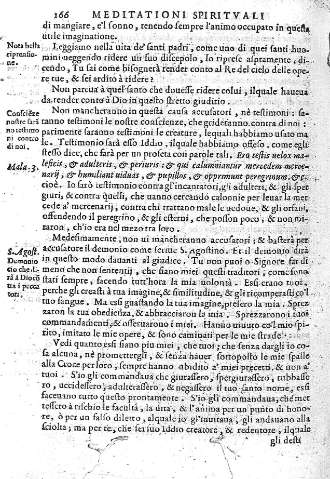 166 MEDITATIONI SPIRITVALI
di mangiare, e'l sonno, tenendo sempre l'animo occupato in questa
utile imaginatione.
Nota bella
Leggiamo nella uita de' santi padri, come uno di quei santi huo-
mini ueggendo ridere un suo discepolo, lo riprese aspramente, di-
cendo, Tu sai come bisognerà render conto al Re del cielo delle ope
re tue, & sei ardito à ridere?
Non parcua à quel santo che douesse ridere colui, ilquale haueua
da render conto à Dio in questo stretto giudicio.
Non mancheranno in questa causa accusatori, nè testimoni: sa-
ranno testimoni le nostre conscienze, che grideranno contra di noi:
parimente saranno testimoni le creature, lequali habbiamo usato ma
le. Testimonio sarà esso Iddio, ilquale habbiamo offeso, come egli
stesso dice, che sarà per un profeta con parole tali. Ero testis uelox ma-
leficis, & adulteris, & periuris: & qui calumniantur mercedem merce-
Mala. 3.
narij, & humiliant uiduas, & pupillos, & opprimunt peregrinum, &
cioè. Io sarò testimonio contra gl'incantatori, gli adulteri, & gli sper
giuri, & contra quelli, che uanno cercando calonnie per leuar la mer
cede a' mercenarij, contra chi trattano male le uedoue, & gli orfani,
offendendo il peregrino, & gli esterni, che posson poco, & non mi-
raron, ch'io era nel mezo tra loro.
Medesimamente, non ui mancheranno accusatori: & basterà per
S. Agost.
accusatore il demonio come scriue S. Agostino. Et il demonio dirà
in questo modo dauanti al giudice. Tu non puoi ò Signore far di
meno che non sententij, che siano miei questi traditori, come sono
stati sempre, facendo tutt'hora la mia uolontà. Essi erano tuoi,
perche gli creasti à tua imagine, & similitudine, & gli ricomperasti co'l
tuo sangue. Ma essi guastando la tua imagine, presero la mia. Sprez-
zaron la tua obedienza, & abbracciaron la mia. Sprezzarono i tuoi
commandamenti, & osseruarono i miei. Hanno uiuuto co'l mio spi-
rito, imitato le mie opere, & sono caminati per le mie strade.
Vedi quanto essi siano piu miei, che tuoi; che senza dargli io co-
sa alcuna, nè promettergli, & senza hauer sottoposto le mie spalle
alla Croce per loro, sempre hanno ubidito a' miei precetti, & non a'
tuoi. S'io gli commandaua che giurassero, spergiurassero, rubbasse
ro, uccidessero, adulterassero, & negassero il tuo santo nome, essi
faceuano tutto questo prontamente. S'io gli commandaua, che met
tessero à rischio le facultà, la uita, & l'anima per un punto di hono-
re, ò per un falso diletto, alquale io gl'inuitaua, gli andauano alla
sciolta, ma per te, che sei suo Iddio creatore, & redentore, ilquale
gli desti